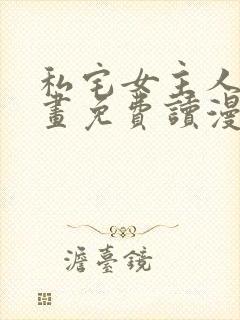 私宅女主人
畫免費讀漫
澹臺鏡